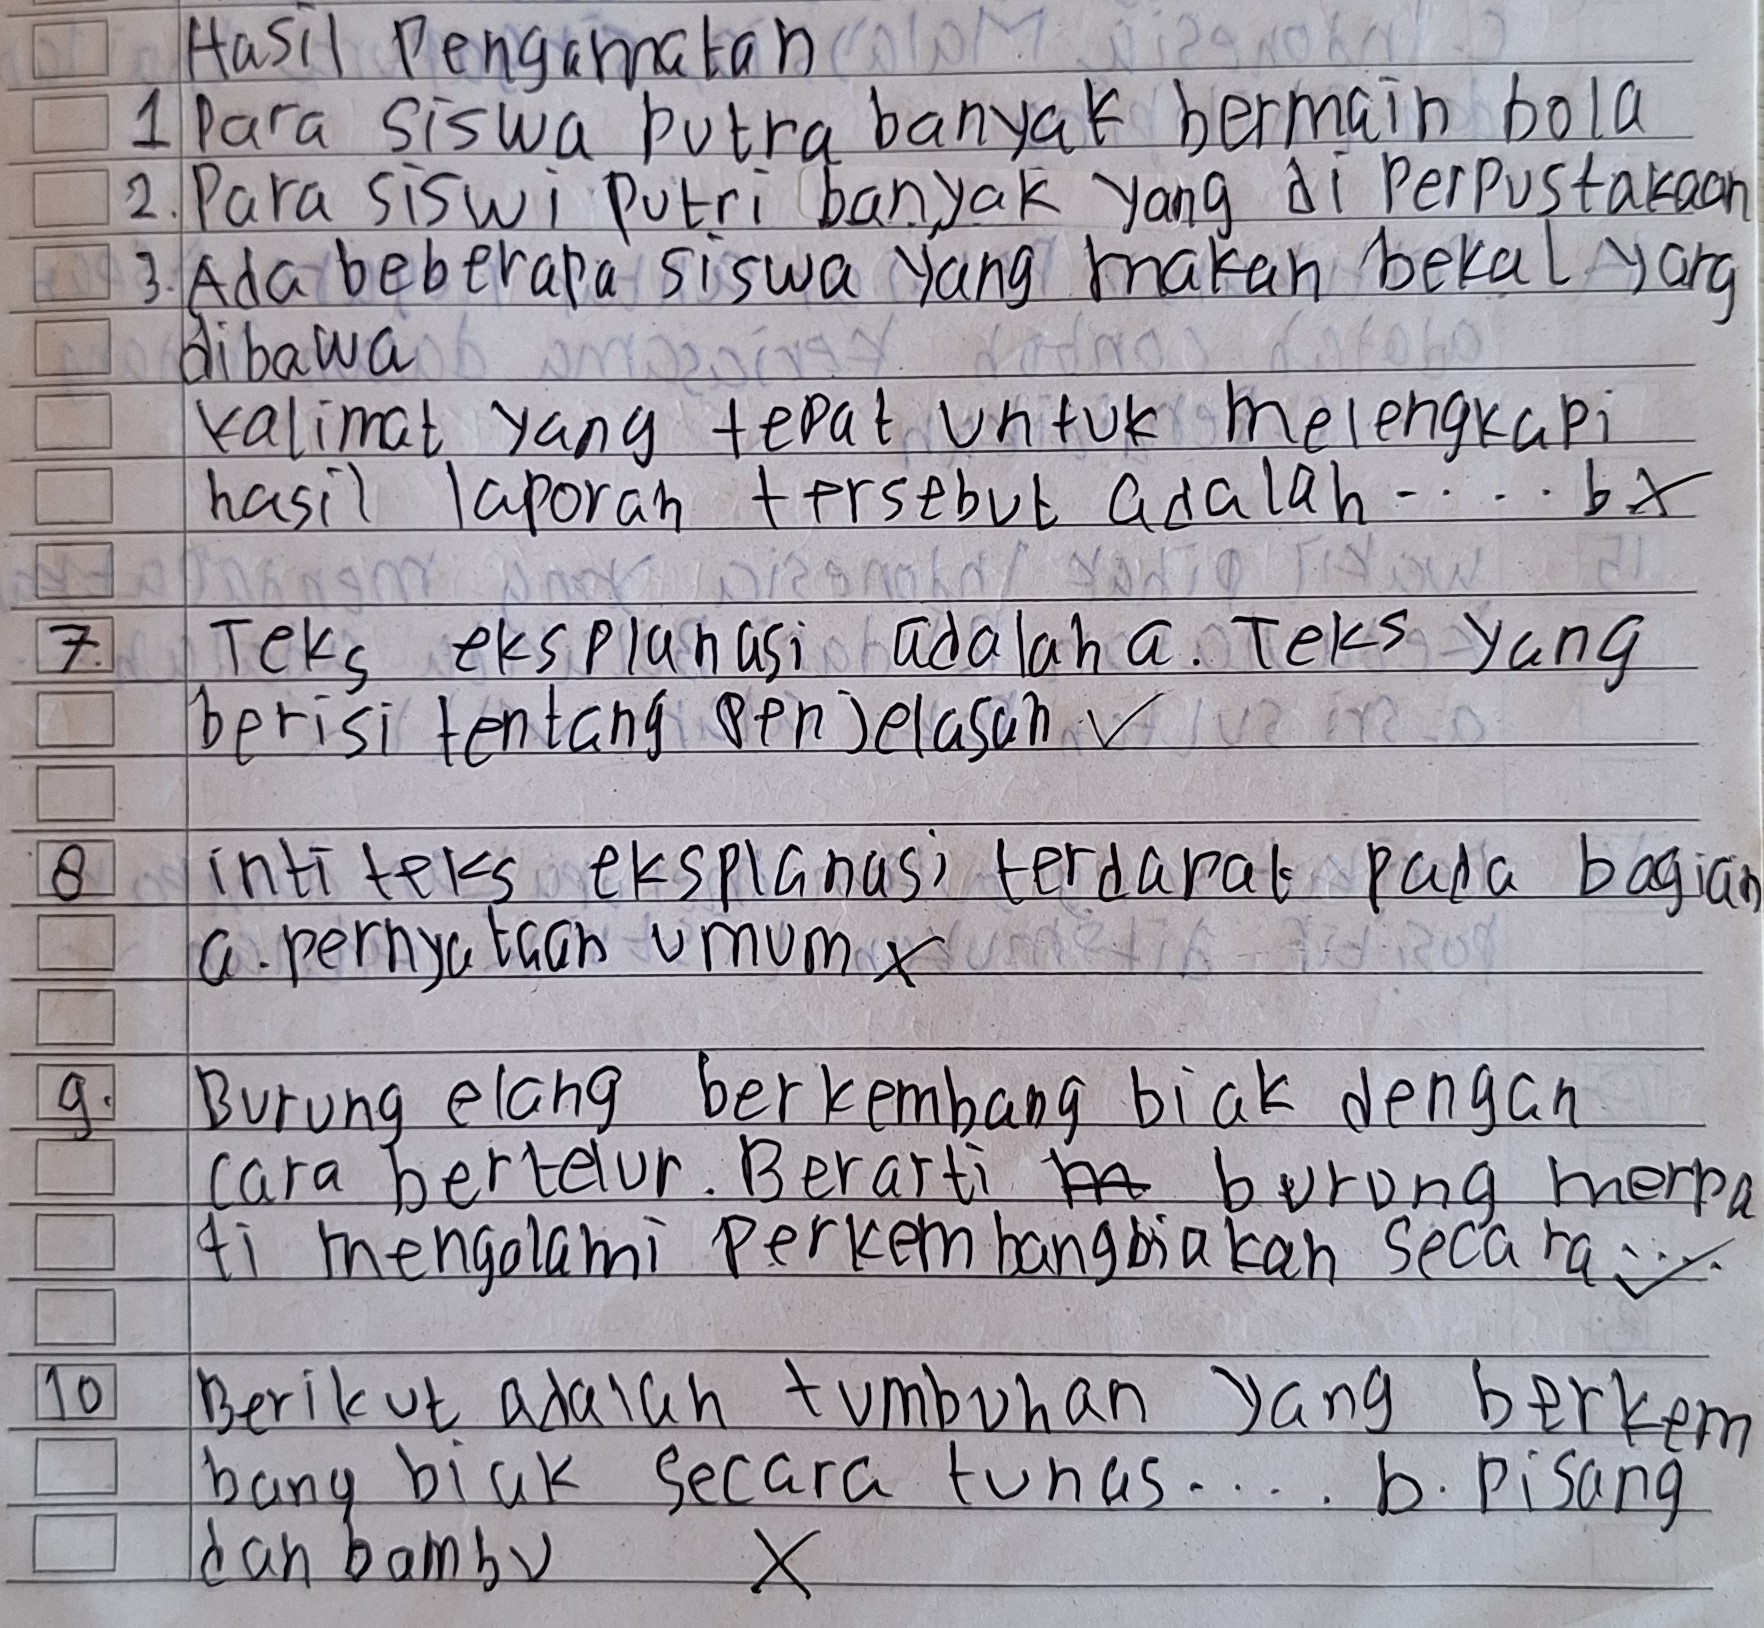 Hasil Pengamatan
1 Para siswa putra banyak bermain bola
2. Para siswi putri banyak yang di Perpustakaan
3. Ada beberapa siswa yang makan bekal yang
dibawa
kalimat yang tepat untuk melengkapi
hasil laporan tersebut adalah ..... b X
7. Teks eksplanasi adalah a. Teks yang
berisi tentang Penjelasan ✓
8 inti teks eksplanasi terdapat pada bagian
a. pernyataan umum X
9. Burung elang berkembang biak dengan
cara bertelur. Berarti burung merpa
ti mengalami Perkembangbiakan secara .... ✓
10 Berikut adalah tumbuhan yang berkem
bang biak secara tunas .... b. Pisang
dan bambu X